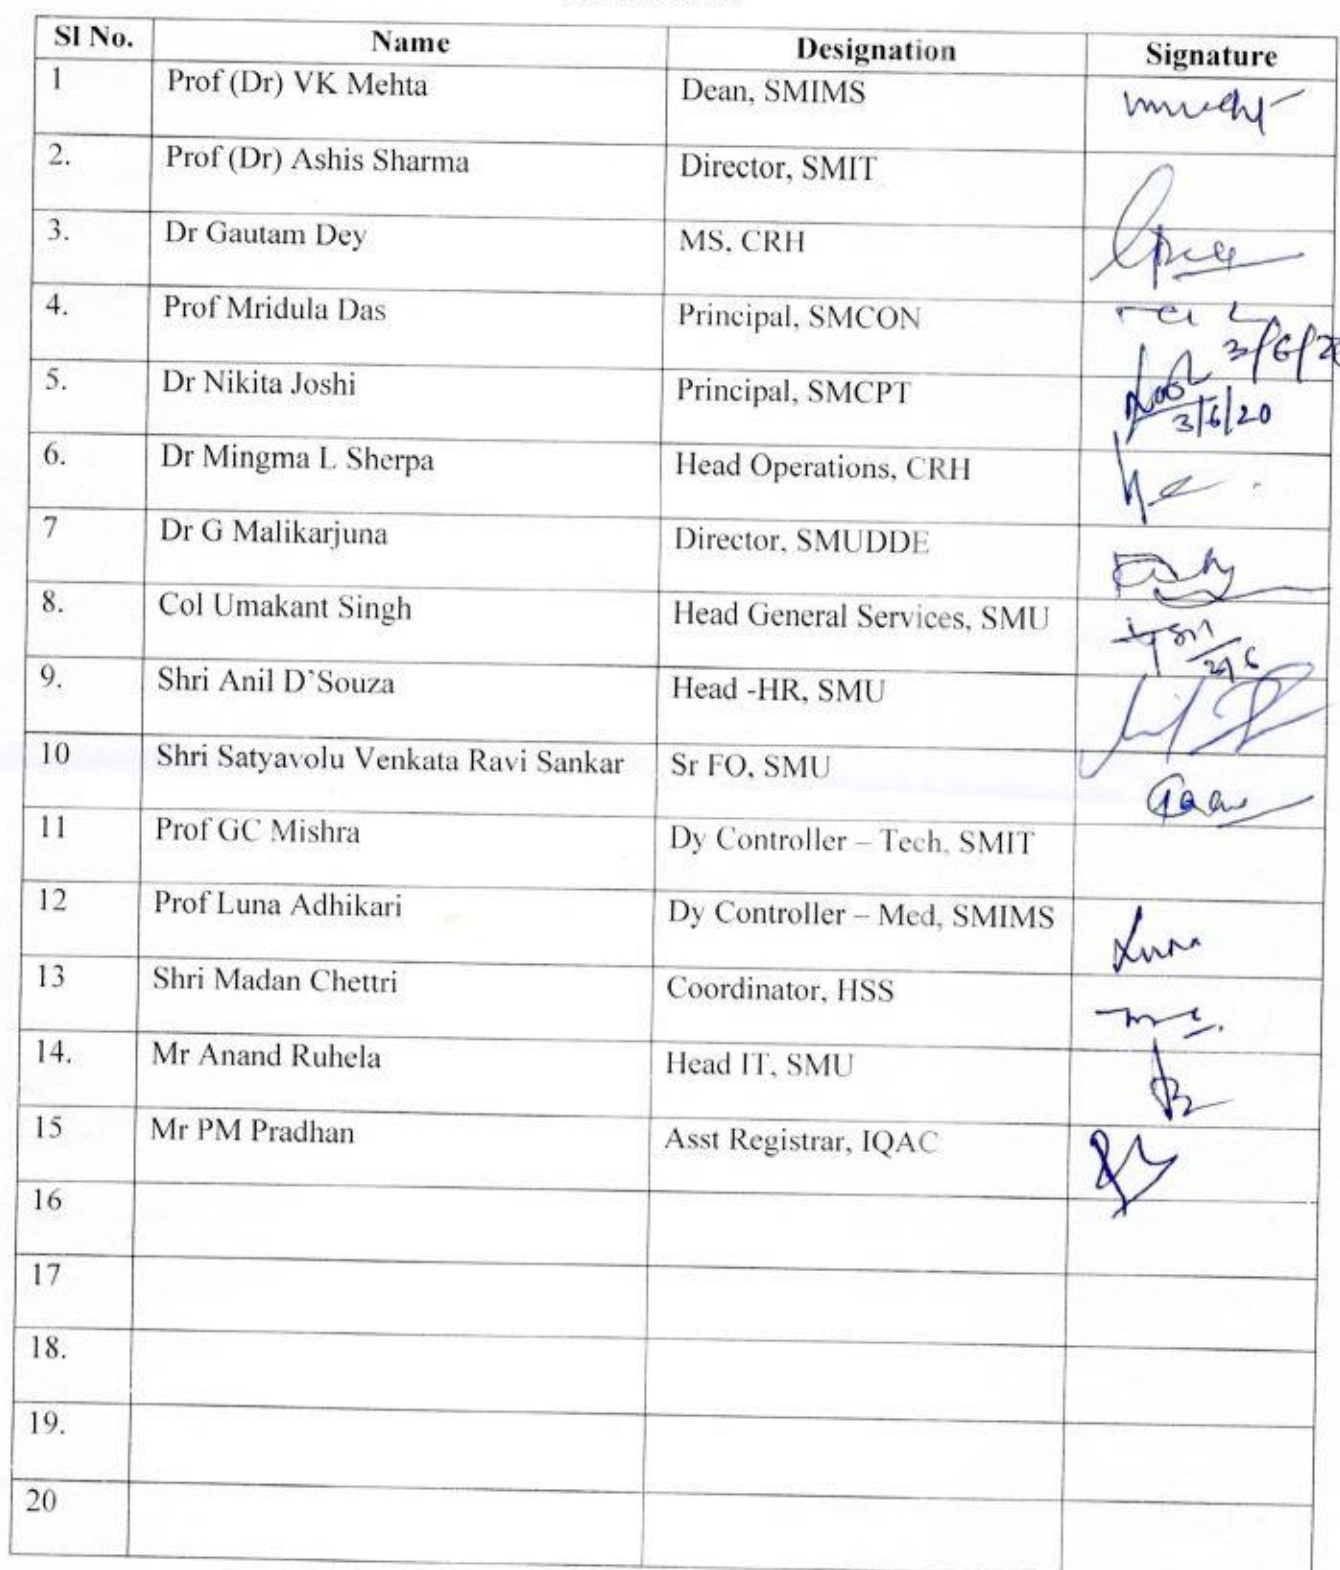 Sl No. Name Designation Signature
1 Prof (Dr) VK Mehta Dean, SMIMS
2. Prof (Dr) Ashis Sharma Director, SMIT
3. Dr Gautam Dey MS, CRH
4. Prof Mridula Das Principal, SMCON
3/6/20
5. Dr Nikita Joshi Principal, SMCPT
3/6/20
6. Dr Mingma L Sherpa Head Operations, CRH
7 Dr G Malikarjuna Director, SMUDDE
8. Col Umakant Singh Head General Services, SMU
9. Shri Anil D'Souza Head -HR, SMU
10 Shri Satyavolu Venkata Ravi Sankar Sr FO, SMU
11 Prof GC Mishra Dy Controller – Tech, SMIT
12 Prof Luna Adhikari Dy Controller – Med, SMIMS Luna
13 Shri Madan Chettri Coordinator, HSS
14. Mr Anand Ruhela Head IT, SMU
15 Mr PM Pradhan Asst Registrar, IQAC
16
17
18.
19.
20